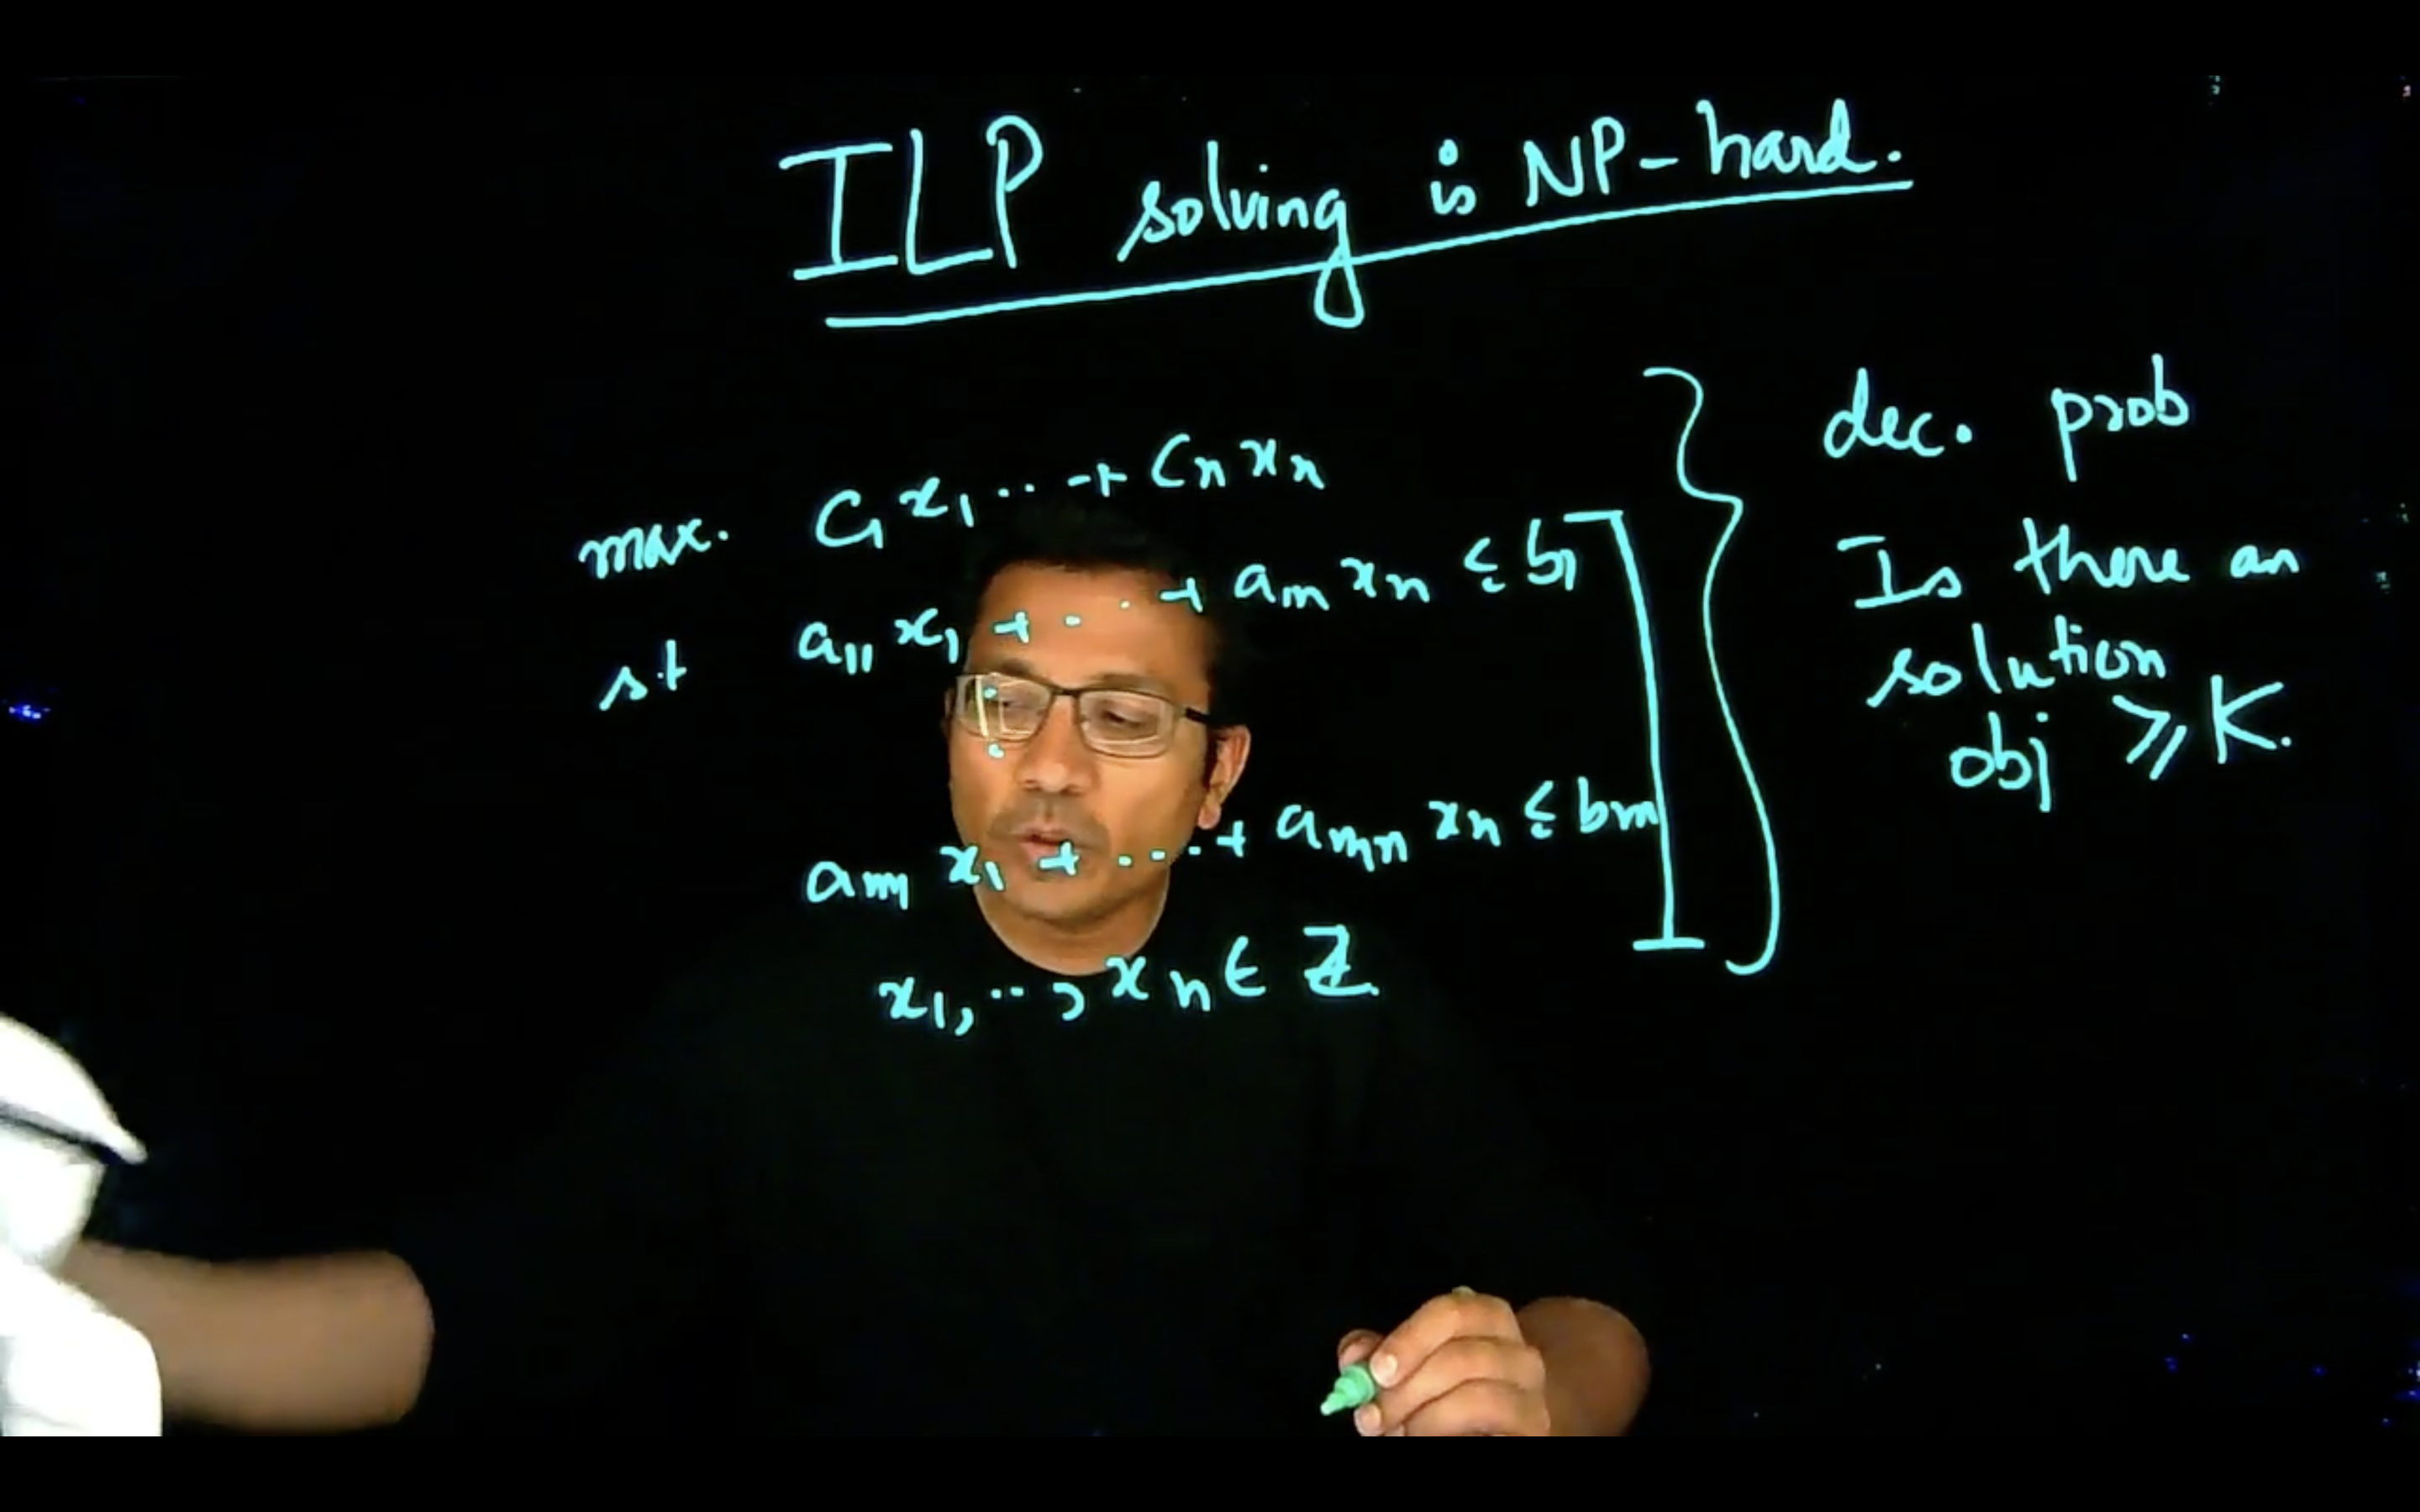 ILP solving is NP-hard.
max. C₁x₁ ... + Cₙxₙ
st a₁₁x₁ + ... + a₁ₙxₙ ≤ b₁
⋮
aₘ₁x₁ + ... + aₘₙxₙ ≤ bₘ
x₁, .., xₙ ∈ ℤ
dec. prob
Is there an
solution
obj ≥ K.